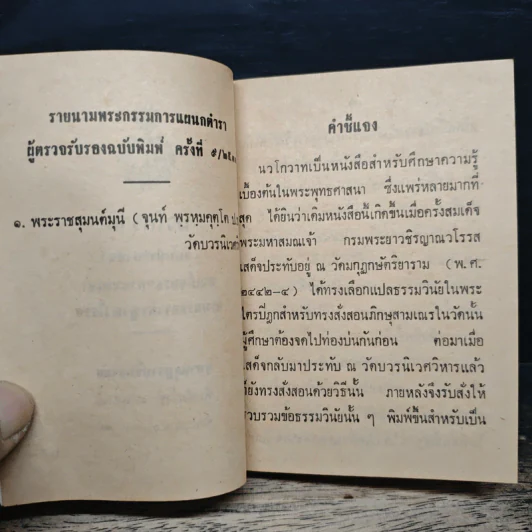 รายนามพระกรรมการแผนกตำรา
ผู้ตรวจรับรองฉบับพิมพ์ ครั้งที่
๑. พระราชสุมนต์มุนี (จุนท์ พฺรหฺมคุตฺโต
วัดบวรนิเวศ
คำชี้แจง
นวโกวาทเป็นหนังสือสำหรับศึกษาความรู้
เบื้องต้นในพระพุทธศาสนา ซึ่งแพร่หลายมากที่
สุด ได้ยินว่าเดิมหนังสือนี้เกิดขึ้นเมื่อครั้งสมเด็จ
พระมหาสมณเจ้า กรมพระยาวชิรญาณวโรรส
เสด็จประทับอยู่ ณ วัดมกุฏกษัตริยาราม (พ.ศ.
๒๔๔๒-๔) ได้ทรงเลือกแปลธรรมวินัยในพระ
ไตรปิฎกสำหรับทรงสั่งสอนภิกษุสามเณรในวัดนั้น
ผู้ศึกษาต้องจดไปท่องบ่นกันก่อน ต่อมาเมื่อ
เสด็จกลับมาประทับ ณ วัดบวรนิเวศวิหารแล้ว
ก็ยังทรงสั่งสอนด้วยวิธีนั้น ภายหลังจึงรับสั่งให้
รวบรวมข้อธรรมวินัยนั้น ๆ พิมพ์ขึ้นสำหรับเป็น